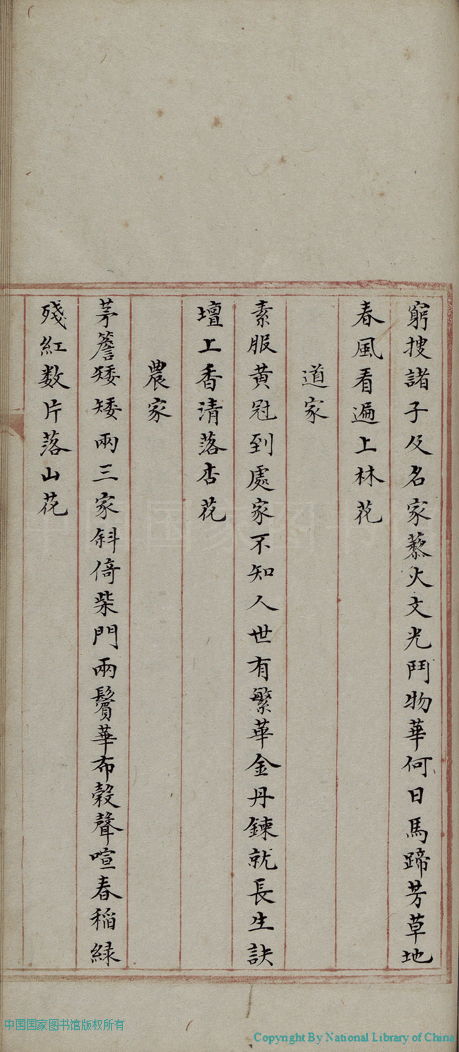 窮搜諸子及名家藜火文光鬥物華何日馬蹄芳草地
春風看遍上林花
道家
素服黃冠到處家不知人世有繁華金丹鍊就長生訣
壇上香清落杏花
農家
茅簷矮矮兩三家斜倚柴門兩鬢華布穀聲喧春稲緑
殘紅数片落山花
中国国家图书馆版权所有
Copyright By National Library of China